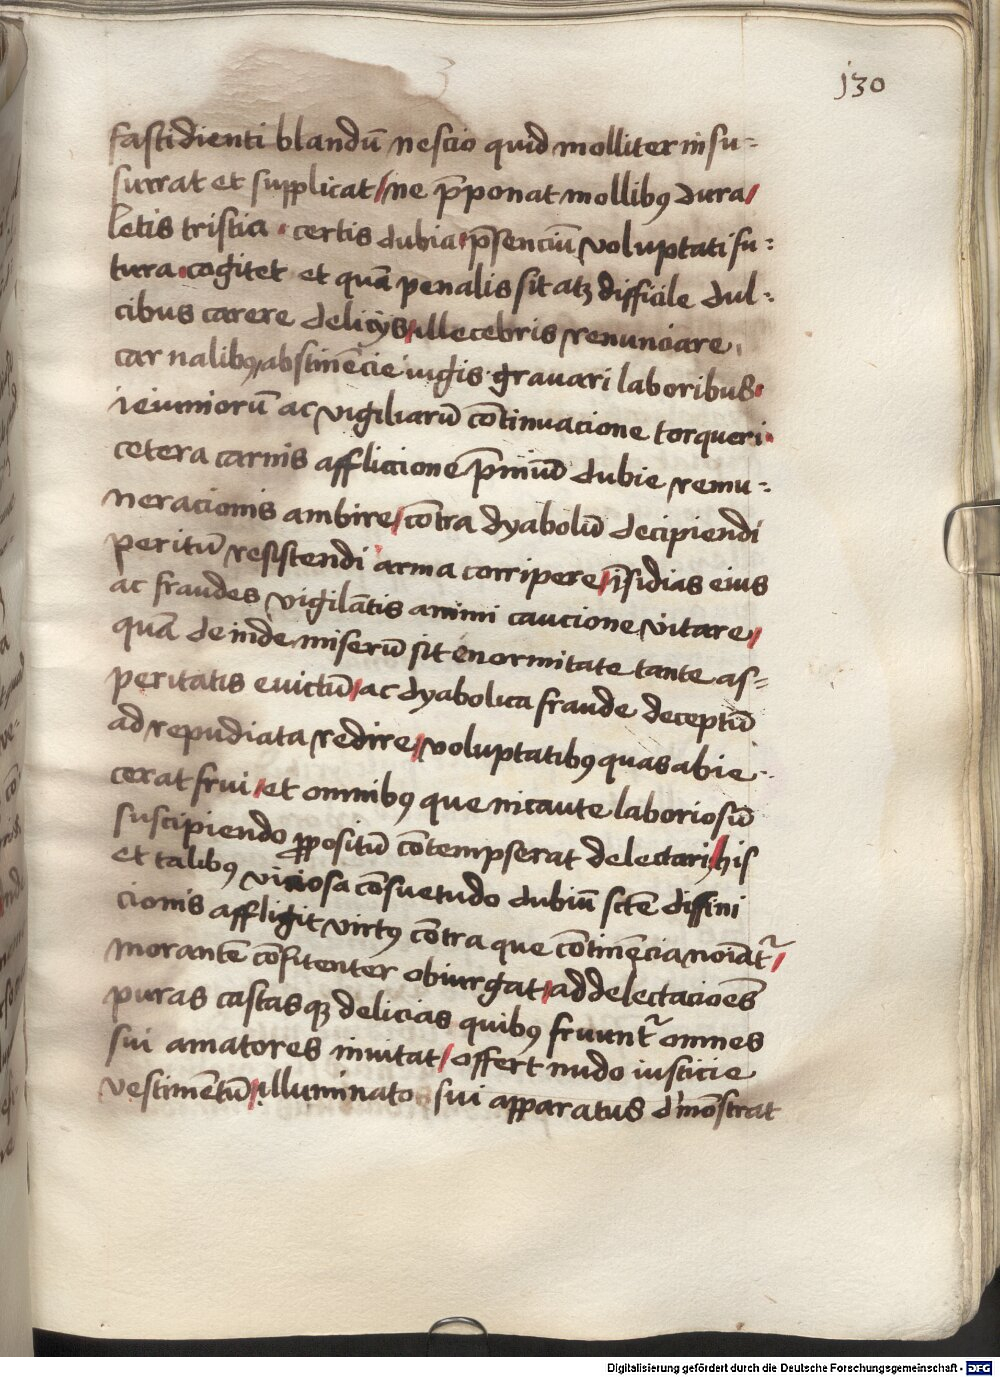 j30
fastidienti blandū nescio quid molliter insu-
surrat et supplicat / ne p̄ponat mollibꝯ dura /
letis tristia · certis dubia · p̄senciū voluptati fu:
tura · cogitet et quā penalis sit atqꝫ difficile dul:
cibus carere delicijs / illecebris renunciare
carnalibꝯ / abstinēcie iugis gravari laboribus ·
ieiuniorū ac vigiliarū cōtinuacione torqueri ·
cetera carnis affliccione p̄miū dubie remu:
neracionis ambire / cōtra dyabolū decipiendi
peritū resistendi arma corripere / īsidias eius
ac fraudes vigilātis animi caucione vitare /
quā deinde miserū sit enormitate tante as=
peritatis evictū / ac dyabolica fraude deceptū
ad repudiata redire / voluptatibꝯ quas abie-
cerat frui / et omnibꝯ que incaute laboriosū
suscipiendo ꝓpositū cōtempserat delectari / his
et talibꝯ viciosa cōsuetudo dubiū scte diffini
cionis affligit virtꝯ cōtra que cōtinēcia noīatr̄ /
morantē cōfitenter obiurgat / ad delectacioēs
puras castasqꝫ delicias quibꝯ fruunt᷑ omnes
sui amatores invitat / offert nudo iusticie
vestimētū / illuminato sui apparatus d'mōstrat
Digitalisierung gefördert durch die Deutsche Forschungsgemeinschaft - DFG